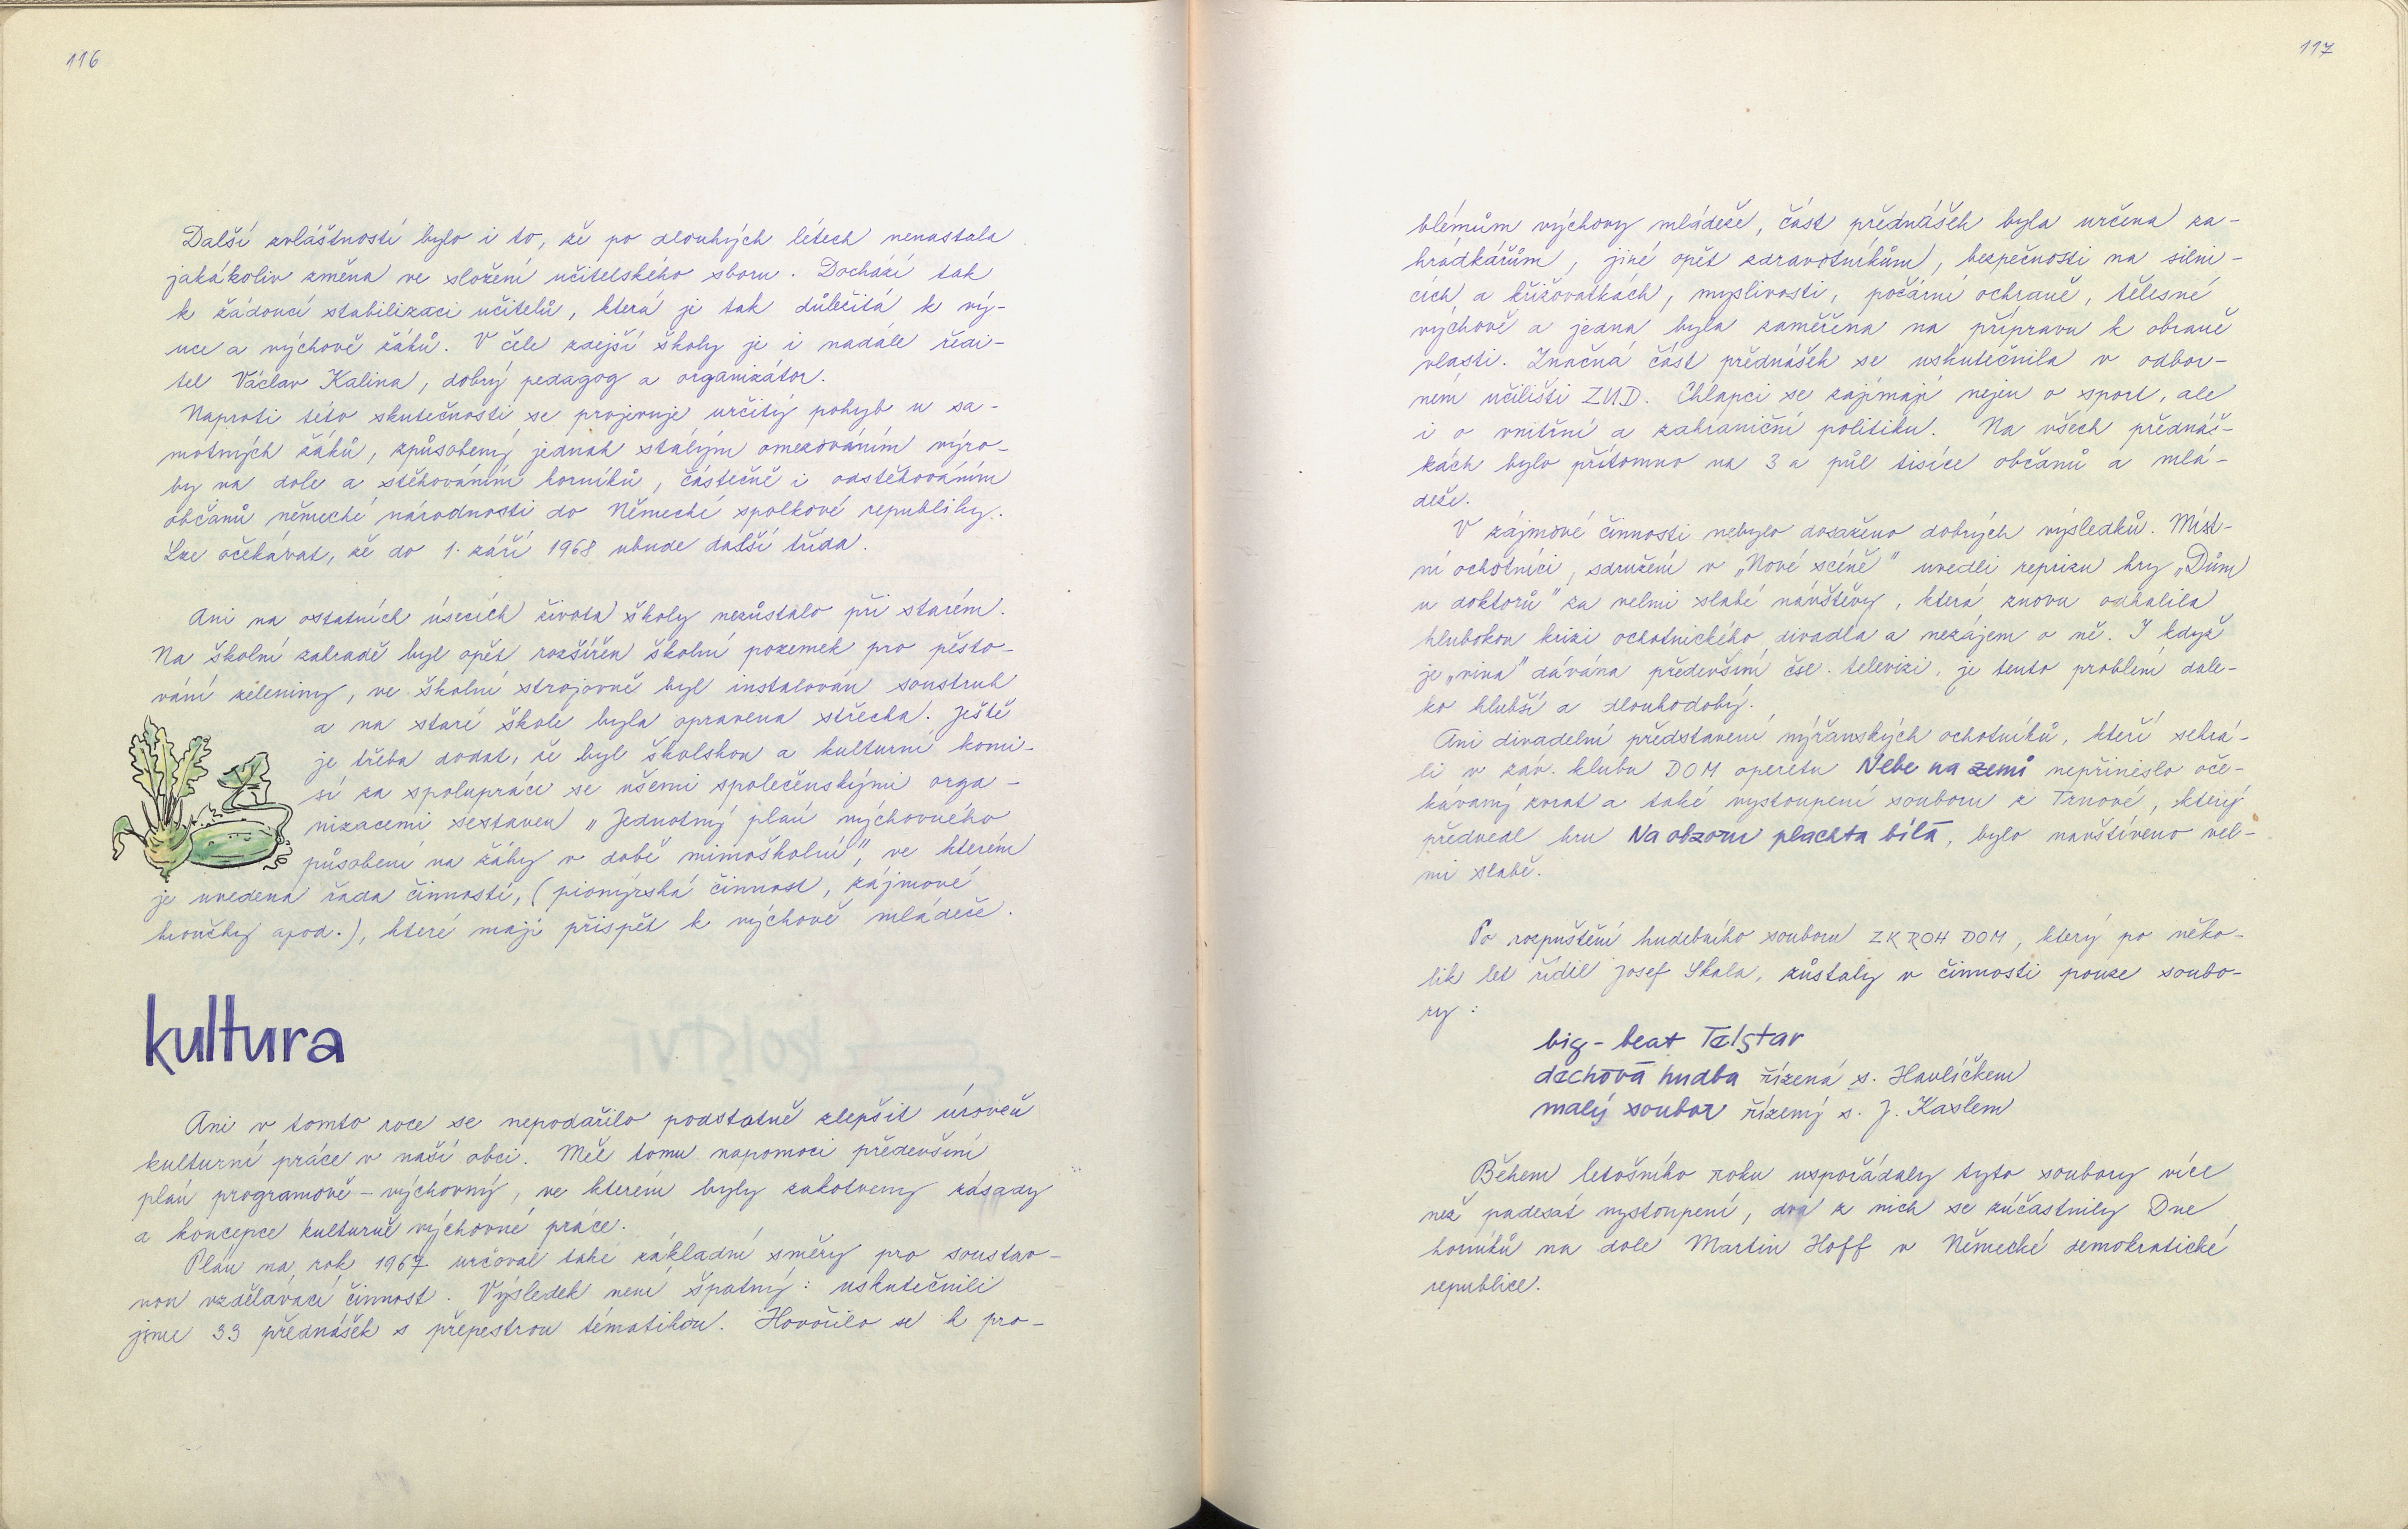 116
Další zvláštností bylo i to, že po dlouhých létech nenastala
jakákoliv změna ve složení učitelského sboru. Dochází tak
k žádoucí stabilizaci učitelů, která je tak důležitá k vý-
uce a výchově žáků. V čele zdejší školy je i nadále ředi-
tel Václav Kalina, dobrý pedagog a organizátor.
Naproti této skutečnosti se projevuje určitý pohyb u sa-
motných žáků, způsobený jednak stálým omezováním výro-
by na dole a stěhováním horníků, částečně i odstěhováním
občanů německé národnosti do Německé spolkové republiky.
Lze očekávat, že do 1. září 1968 ubude další třída.
Ani na ostatních úsecích života školy nezůstalo při starém.
Na školní zahradě byl opět rozšířen školní pozemek pro pěsto-
vání zeleniny, ve školní strojovně byl instalován soustruh
a na staré škole byla opravena střecha. Ještě
je třeba dodat, že byl školskou a kulturní komi-
sí za spolupráce se všemi společenskými orga-
nizacemi sestaven „Jednotný plán výchovného
působení na žáky v době mimoškolní", ve kterém
je uvedena řada činností, (pionýrská činnost, zájmové
kroužky apod.), které mají přispět k výchově mládeže.
kultura
Ani v tomto roce se nepodařilo podstatně zlepšit úroveň
kulturní práce v naší obci. Měl tomu napomoci především
plán programově-výchovný, ve kterém byly zakotveny zásady
a koncepce kulturně výchovné práce.
Plán na rok 1967 určoval také základní směry pro soustav-
nou vzdělávací činnost. Výsledek není špatný: uskutečnili
jsme 33 přednášek s přepestrou tématikou. Hovořilo se k pro-
117
blémům výchovy mládeže, část přednášek byla určena za-
hrádkářům, jiné opět zdravotníkům, bezpečnosti na silni-
cích a křižovatkách, myslivosti, požární ochraně, tělesné
výchově a jedna byla zaměřena na přípravu k obraně
vlasti. Značná část přednášek se uskutečnila v odbor-
ném učilišti ZUD. Chlapci se zajímají nejen o sport, ale
i o vnitřní a zahraniční politiku. Na všech přednáš-
kách bylo přítomno na 3 a půl tisíce občanů a mlá-
deže.
V zájmové činnosti nebylo dosaženo dobrých výsledků. Míst-
ní ochotníci, sdružení v „Nové scéně" uvedli reprizu hry „Dům
u doktorů" za velmi slabé návštěvy, která znovu odhalila
hlubokou krizi ochotnického divadla a nezájem o ně. I když
je „vina" dávána především čsl. televizi, je tento problém dale-
ko hlubší a dlouhodobý.
Ani divadelní představení nýřanských ochotníků, kteří sehrá-
li v záv. klubu DOM operetu Nebe na zemi nepřineslo oče-
kávaný zvrat a také vystoupení souboru z Trnové, který
předvedl hru Na obzoru plachta bílá, bylo navštíveno vel-
mi slabě.
Po rozpuštění hudebního souboru ZK ROH DOM, který po něko-
lik let řídil Josef Skala, zůstaly v činnosti pouze soubo-
ry:
big-beat Telstar
dechová hudba řízená s. Havlíčkem
malý soubor řízený s. J. Kaslem
Během letošního roku uspořádaly tyto soubory více
než padesát vystoupení, dva z nich se zúčastnily Dne
horníků na dole Martin Hoff v Německé demokratické
republice.